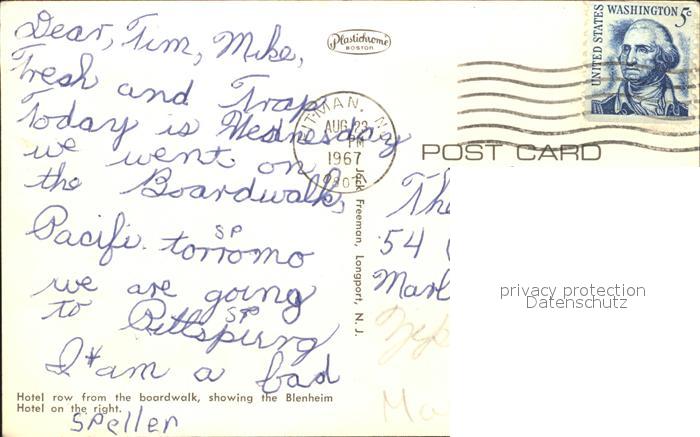 Dear, Tim, Mike,
Tresh and Trap
Today is Wednesday
we went on
the Boardwalk,
Pacifi. torromo
SP
we are going
to Pittspurng
SP
I *am a bad
Speller
Hotel row from the boardwalk, showing the Blenheim
Hotel on the right.
Plastichrome
BOSTON
Jack Freeman, Longport, N. J.
PITMAN, N.J.
AUG 23
PM
1967
POST CARD
UNITED STATES
WASHINGTON 5c
The
54
Marl
Zip
Ma
privacy protection
Datenschutz